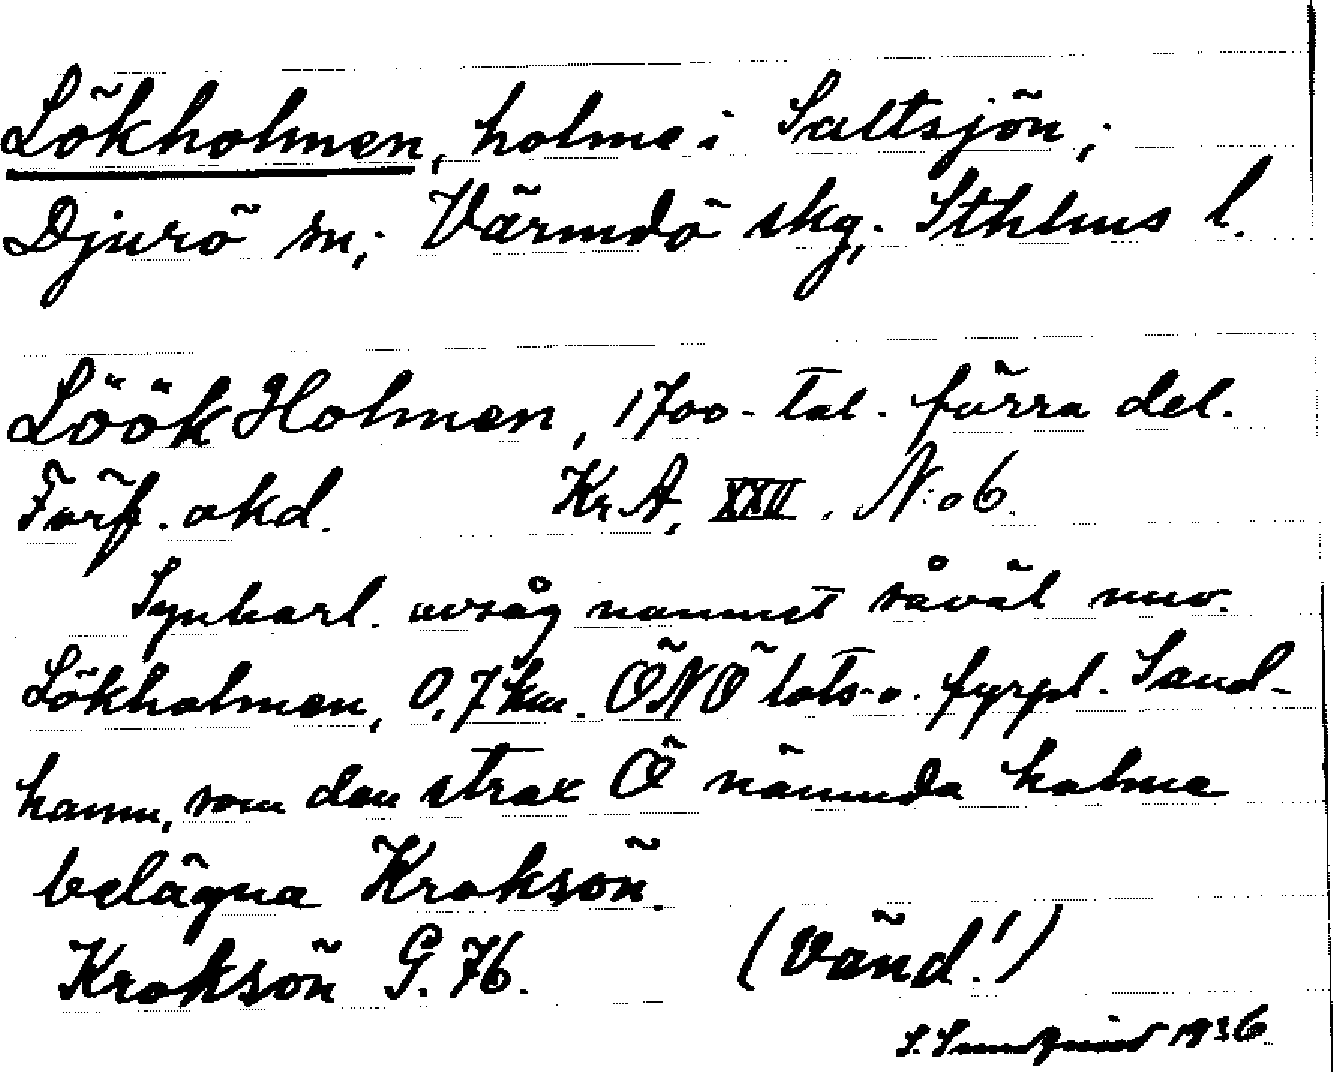 Lökholmen, holme i Saltsjön;
Djurö sn; Värmdö skg; Sthlms l.
Löök Holmen, 1700-tal. förra del.
Förf. okd. Kr.A, XXII. N:o 6.
Synbarl. avsåg namnet såväl nuv.
Lökholmen, 0,7 km. ÖNÖ lots- o. fyrpl. Sand-
hamn, som den strax Ö nämnda holme
belägna Kroksön.
Kroksön G. 76. (Vänd!)
S. Sundquist 1936